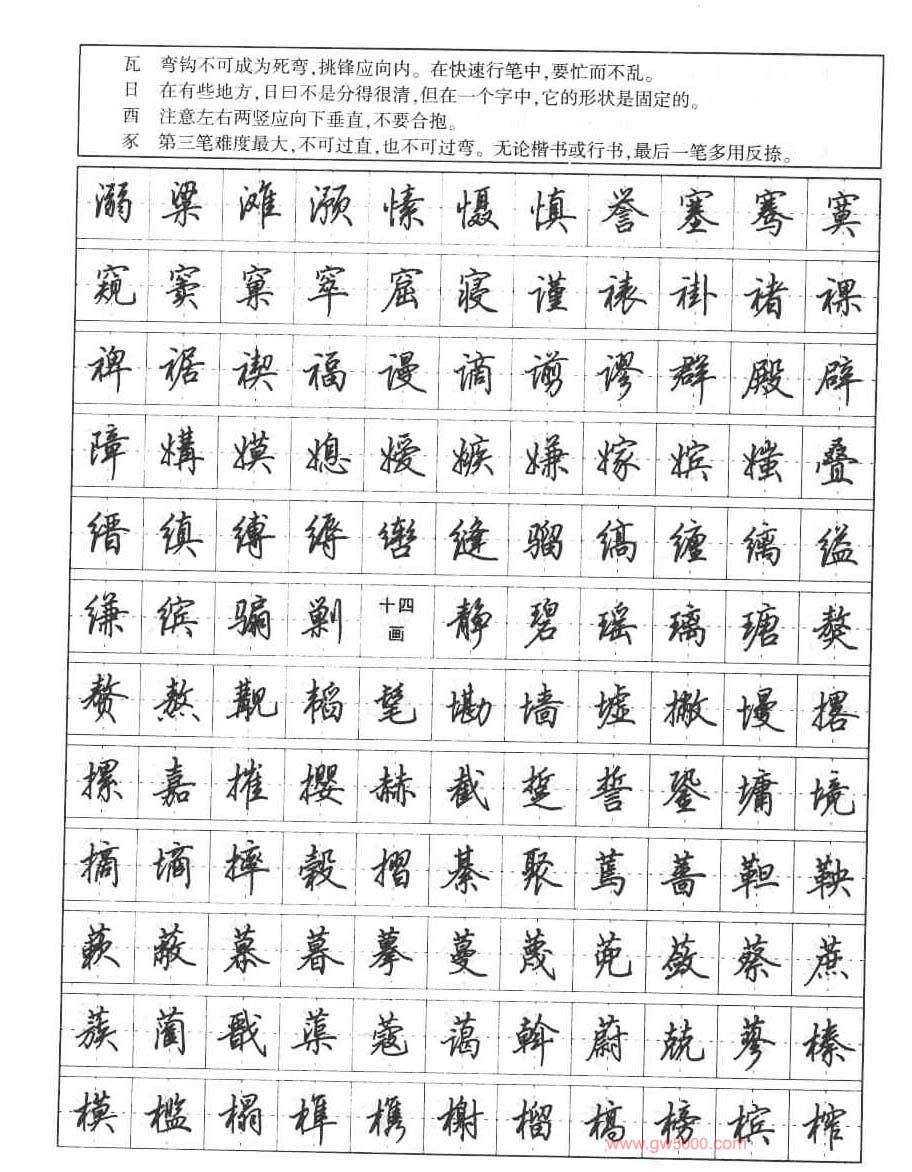 瓦 弯钩不可成为死弯，挑锋应向内。在快速行笔中，要忙而不乱。
日 在有些地方，日曰不是分得很清，但在一个字中，它的形状是固定的。
酉 注意左右两竖应向下垂直，不要合抱。
豕 第三笔难度最大，不可过直，也不可过弯。无论楷书或行书，最后一笔多用反捺。
溺 粱 滩 滪 愫 慑 慎 誉 塞 骞 寞
窥 窦 窠 窣 窟 寝 谨 裱 褂 褚 裸
裨 裾 禊 福 谩 谪 谫 谬 群 殿 辟
障 媾 嫫 媳 嫒 嫉 嫌 嫁 嫔 媸 叠
缙 缜 缚 缛 辔 缝 骝 缟 缠 缡 缢
缣 缤 骗 剿 十四画 静 碧 瑶 璃 瑭 獒
赘 熬 觏 韬 髦 墈 墙 墟 撇 墁 撂
摞 嘉 摧 撄 赫 截 踅 誓 銎 墉 境
摘 墒 摔 榖 摺 綦 聚 蔫 蔷 靼 鞅
蔌 蔽 慕 暮 摹 蔓 蔑 蔸 蔹 蔡 蔗
蔟 蔺 戬 蕖 蔻 蔼 斡 蔚 兢 蓼 榛
模 槛 榻 榫 槜 榭 榴 槁 榜 槟 榨
www.gw5000.com